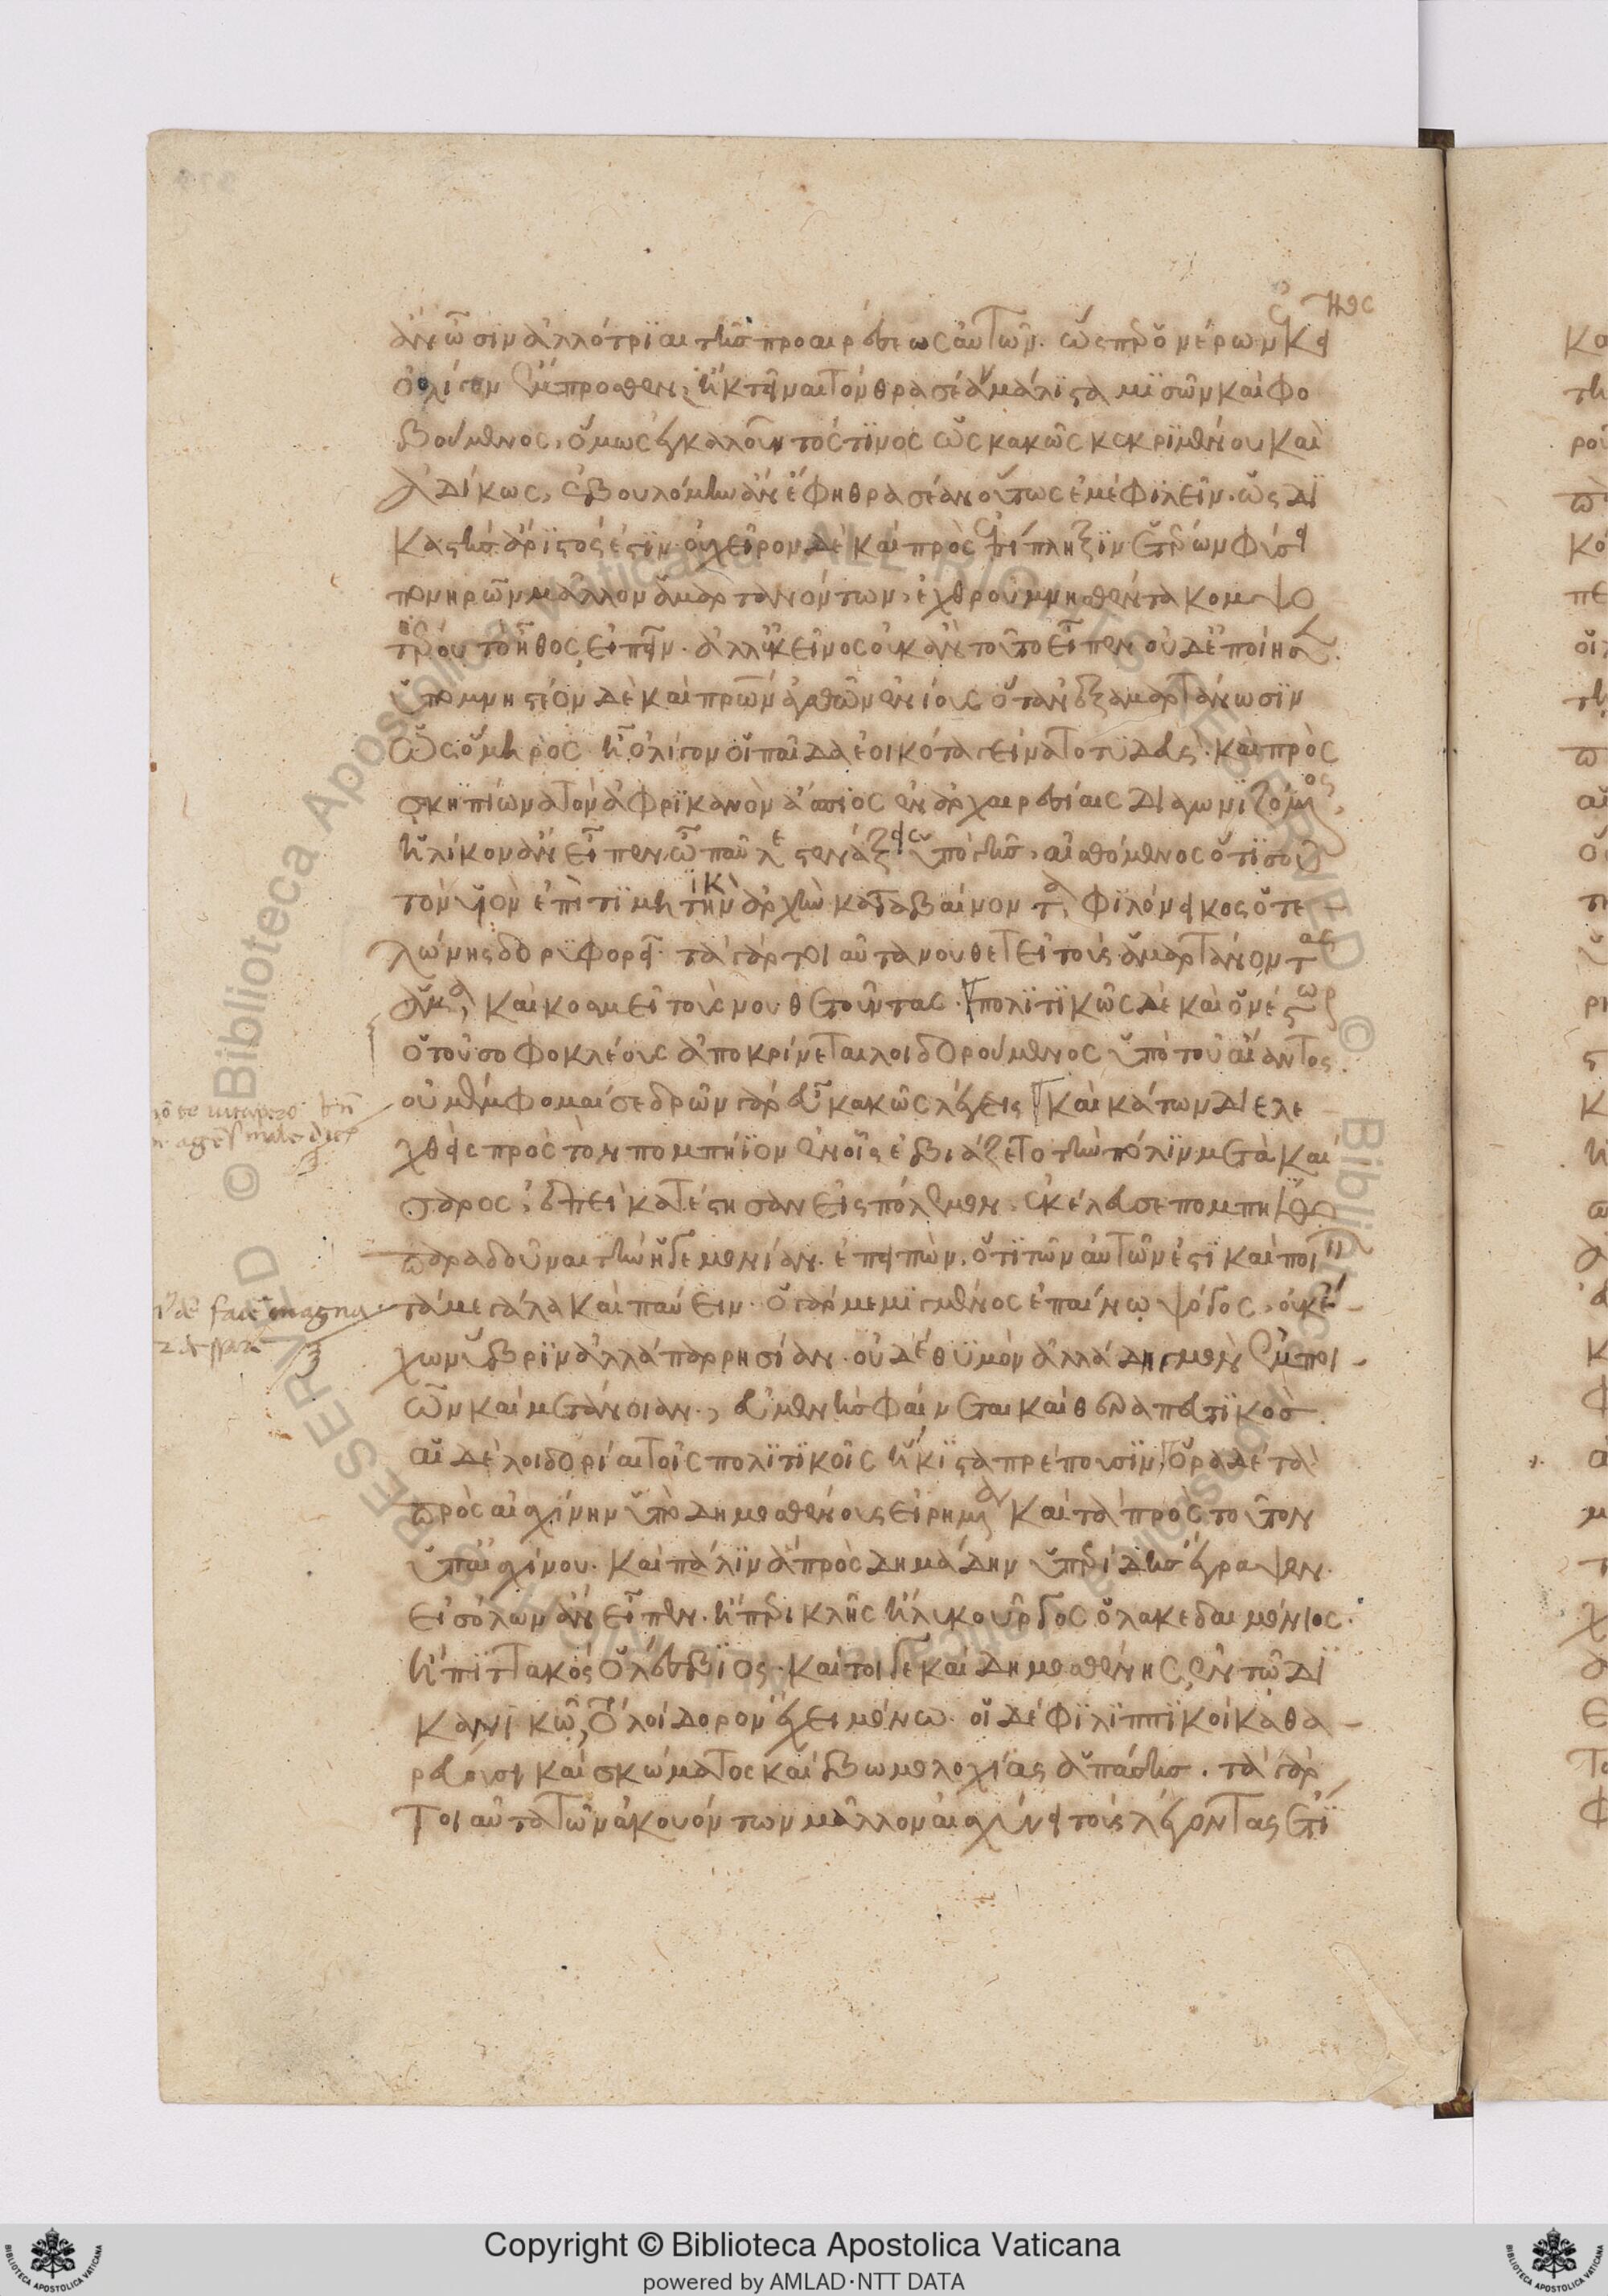 ἂν ὦσιν ἀλλότριαι τῆς προαιρέσεως αὐτῶν. ὥσπερ ὁ νέρων καὶ
ὀλίγον ἔμπροσθεν ἢ κτεῖναι τὸν θρασέα μάλιστα μισῶν καὶ φο
βούμενος, ὅμως ἐγκαλοῦντός τινος ὡς κακῶς κεκριμένου καὶ
ἀδίκως, ἐβουλόμην ἂν ἔφη θρασέαν οὕτως ἐμὲ φιλεῖν. ὡς δι
καστὴς ἄριστός ἐστιν. οὐ χεῖρον δὲ καὶ πρὸς ἐπίπληξιν ἑτέρων φύσει
πονηρῶν μᾶλλον ἁμαρτανόντων, ἐχθροῦ μνησθέντα κομψο
τέρου τὸ ἦθος εἰπεῖν. ἀλλ' ἐκεῖνος οὐκ ἂν τοῦτο εἶπεν οὐδὲ ἐποίησεν.
ὑπομνηστέον δὲ καὶ πρων ἀγαθῶν ἐνίους ὅταν ἐξαμαρτάνωσιν
ὡς ὅμηρος. ἦ ὀλίγον οἷ παῖδα ἐοικότα γείνατο τυδεύς. καὶ πρὸς
σκηπίωνα τὸν ἀφρικανὸν ἄππιος ἐν ἀρχαιρεσίαις διαγωνιζόμενος,
ἡλίκον ἂν εἶπεν ὦ παῦλε στενάξεις ὑπὸ γῆς, αἰσθόμενος ὅτι σου
τὸν υἱὸν ἐπὶ τιμητικὴν ἀρχὴν καταβαίνοντα φιλόνεικος ὁ τε
λώνης δορυφορεῖ. τὰ γὰρ τοιαῦτα νουθετεῖ τοὺς ἁμαρτάνοντας
ἅμα, καὶ κοσμεῖ τοὺς νουθετοῦντας. πολιτικῶς δὲ καὶ ὁ νέστωρ
ὁ τοῦ σοφοκλέους ἀποκρίνεται λοιδορούμενος ὑπὸ τοῦ αἴαντος.
οὐ μέμφομαί σε δρῶν γὰρ εὖ κακῶς λέγεις καὶ κάτων διελε
χθεὶς πρὸς τὸν πομπήϊον ἐν οἷς ἐβιάζετο τὴν πόλιν μετὰ καί
σαρος, ἐπεὶ κατέστησαν εἰς πόλεμον, ἐκέλευσε πομπηίῳ
παραδοῦναι τὴν ἡγεμονίαν. ἐπειπὼν, ὅτι τῶν αὐτῶν ἐστι καὶ ποιεῖν
τὰ μεγάλα καὶ παύειν. ὁ γὰρ μεμιγμένος ἐπαίνῳ ψόγος, οὐκ ἔ
χων ὕβριν ἀλλὰ παρρησίαν. οὐδὲ θυμὸν ἀλλὰ δηγμὸν ἐμποι
ῶν καὶ μετάνοιαν, εὐμενὴς φαίνεται καὶ θεραπευτικὸς.
αἱ δὲ λοιδορίαι τοῖς πολιτικοῖς ἥκιστα πρέπουσιν. ὅρα δὲ τὰ
πρὸς αἰσχίνην ὑπὸ δημοσθένους εἰρημένα καὶ τὰ πρὸς τοῦτον
ὑπ' αἰσχίνου. καὶ πάλιν ἃ πρὸς δημάδην ὑπερίδης γέγραφεν.
εἰ σόλων ἂν εἶπεν. ἢ περικλῆς ἢ λυκοῦργος ὁ λακεδαιμόνιος.
ἢ πιττακός ὁ λέσβιος. καίτοι γε καὶ δημοσθένης, ἐν τῷ δι
κανικῷ, τὸ λοίδορον ἔχει μόνῳ. οἱ δὲ φιλιππικοὶ καθα
ρεύουσι καὶ σκώματος καὶ βωμολοχίας ἁπάσης. τὰ γὰρ
τοιαῦτα τῶν ἀκουόντων μᾶλλον αἰσχύνει τοὺς λέγοντας ἔτι
Copyright © Biblioteca Apostolica Vaticana
powered by AMLAD·NTT DATA